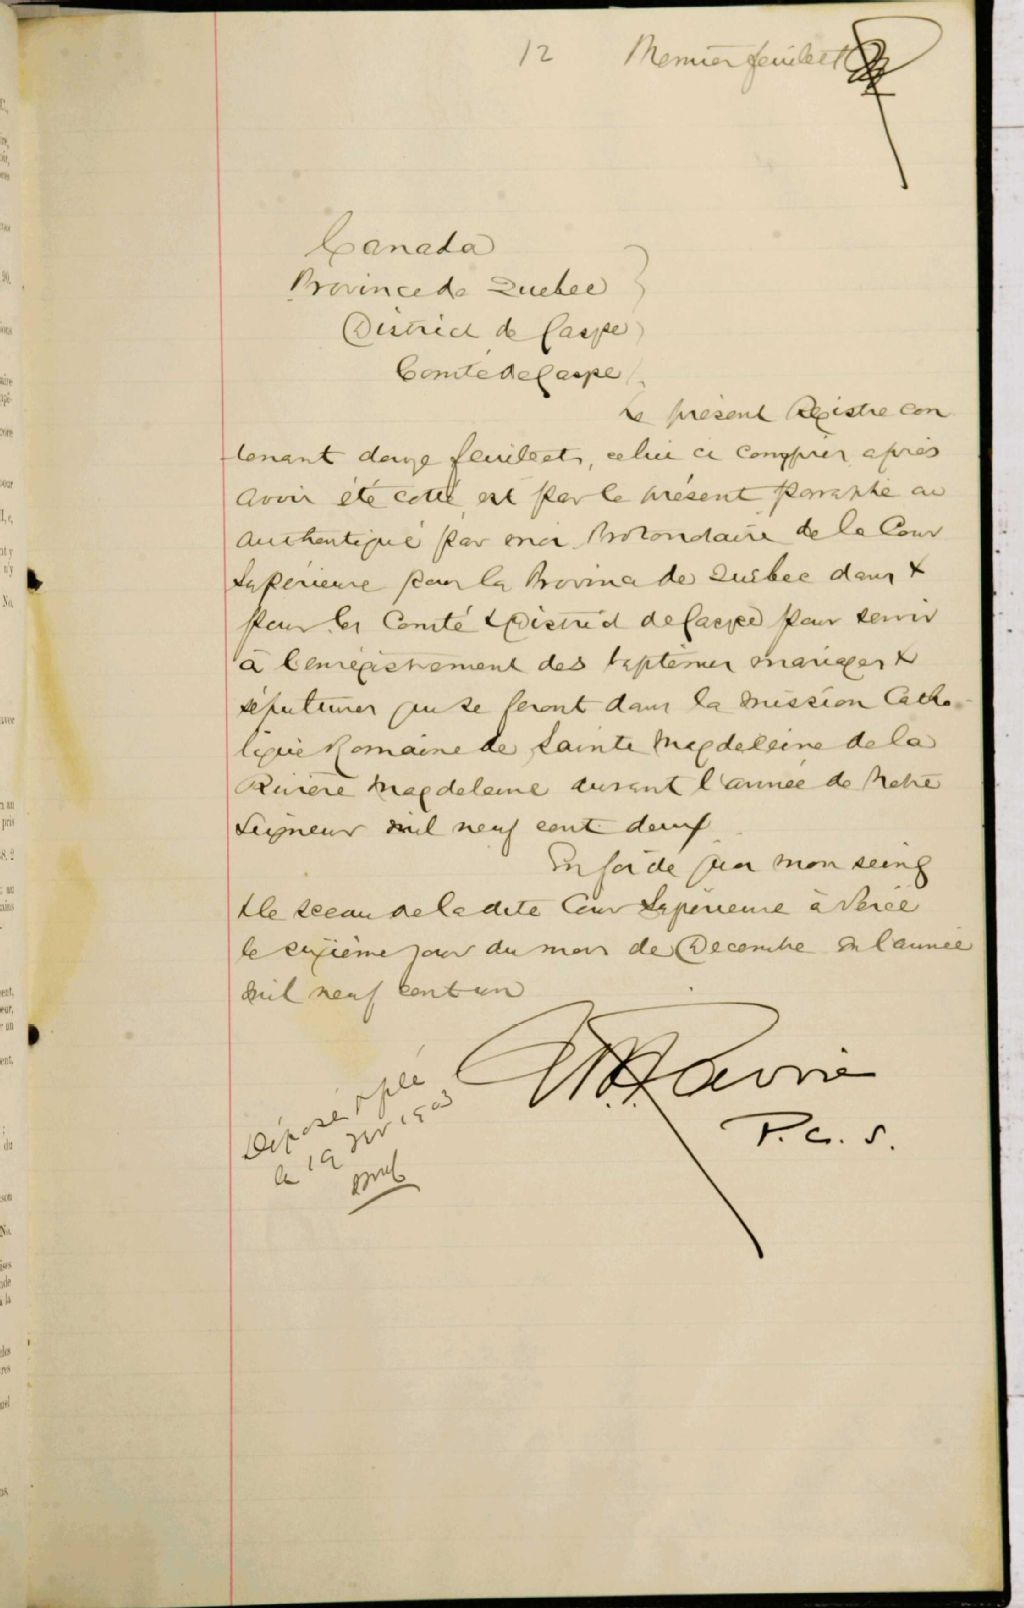 12 Premier feuillet
Canada
Province de Quebec
District de Gaspe
Comté de Gaspe
Le présent Registre con
tenant douze feuillets, celui ci compris après
avoir été cotté, est par le présent paraphé au
authentiqué par moi Protonotaire de la Cour
Supérieure pour la Province de Québec dans &
pour les Comté & District de Gaspé pour servir
à l'enregistrement des baptêmes mariages &
sépultures qui se feront dans la mission Catho-
lique Romaine de Sainte Magdeleine de la
Rivière Magdeleine durant l'année de Notre
Seigneur mil neuf cent deux
En foi de quoi mon seing
& le sceau de la dite Cour Supérieure à Percé
le sixième jour du mois de Decembre en l'année
mil neuf cent un
P. C. S.
Déposé
le 19 1903